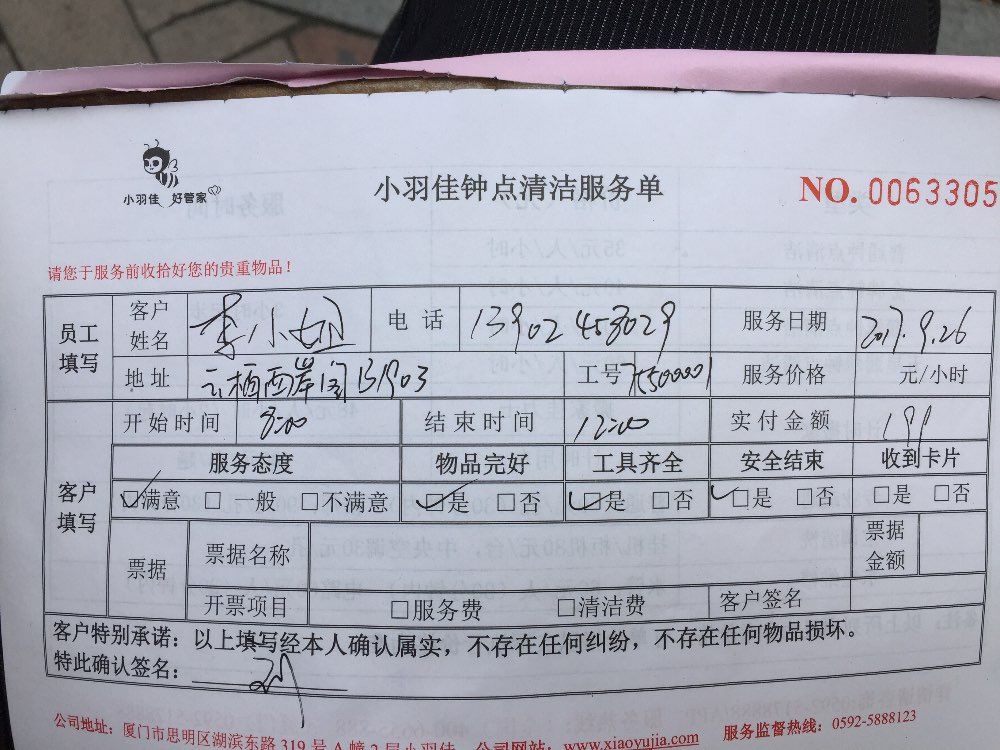 小羽佳 好管家
小羽佳钟点清洁服务单
NO. 0063305
请您于服务前收拾好您的贵重物品！
员工填写 客户姓名 李小姐 电话 13902453029 服务日期 2017.9.26
地址 云栖西岸 131903 工号 7550001 服务价格 元/小时
客户填写 开始时间 8:00 结束时间 12:00 实付金额 191
服务态度 物品完好 工具齐全 安全结束 收到卡片
☑满意 □一般 □不满意 ☑是 □否 ☑是 □否 ☑是 □否 □是 □否
票据 票据名称 票据金额
开票项目 □服务费 □清洁费 客户签名
客户特别承诺：以上填写经本人确认属实，不存在任何纠纷，不存在任何物品损坏。
特此确认签名：
公司地址：厦门市思明区湖滨东路 319 号 A 幢 2 层小羽佳 公司网站：www.xiaoyujia.com 服务监督热线：0592-5888123